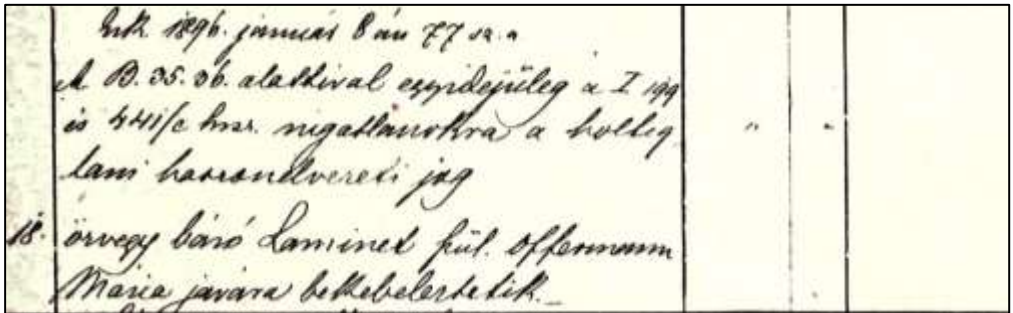 Érk. 1896. január 8 án 77 sz. a
A B. 35. 36. alattival egyidejüleg a I 199
és 441/c hrsz. ingatlanokra a holtig
tani haszonélvezeti jog
18. özvegy báró Laminet szül. Offermann
Mária javára bekebeleztetik.